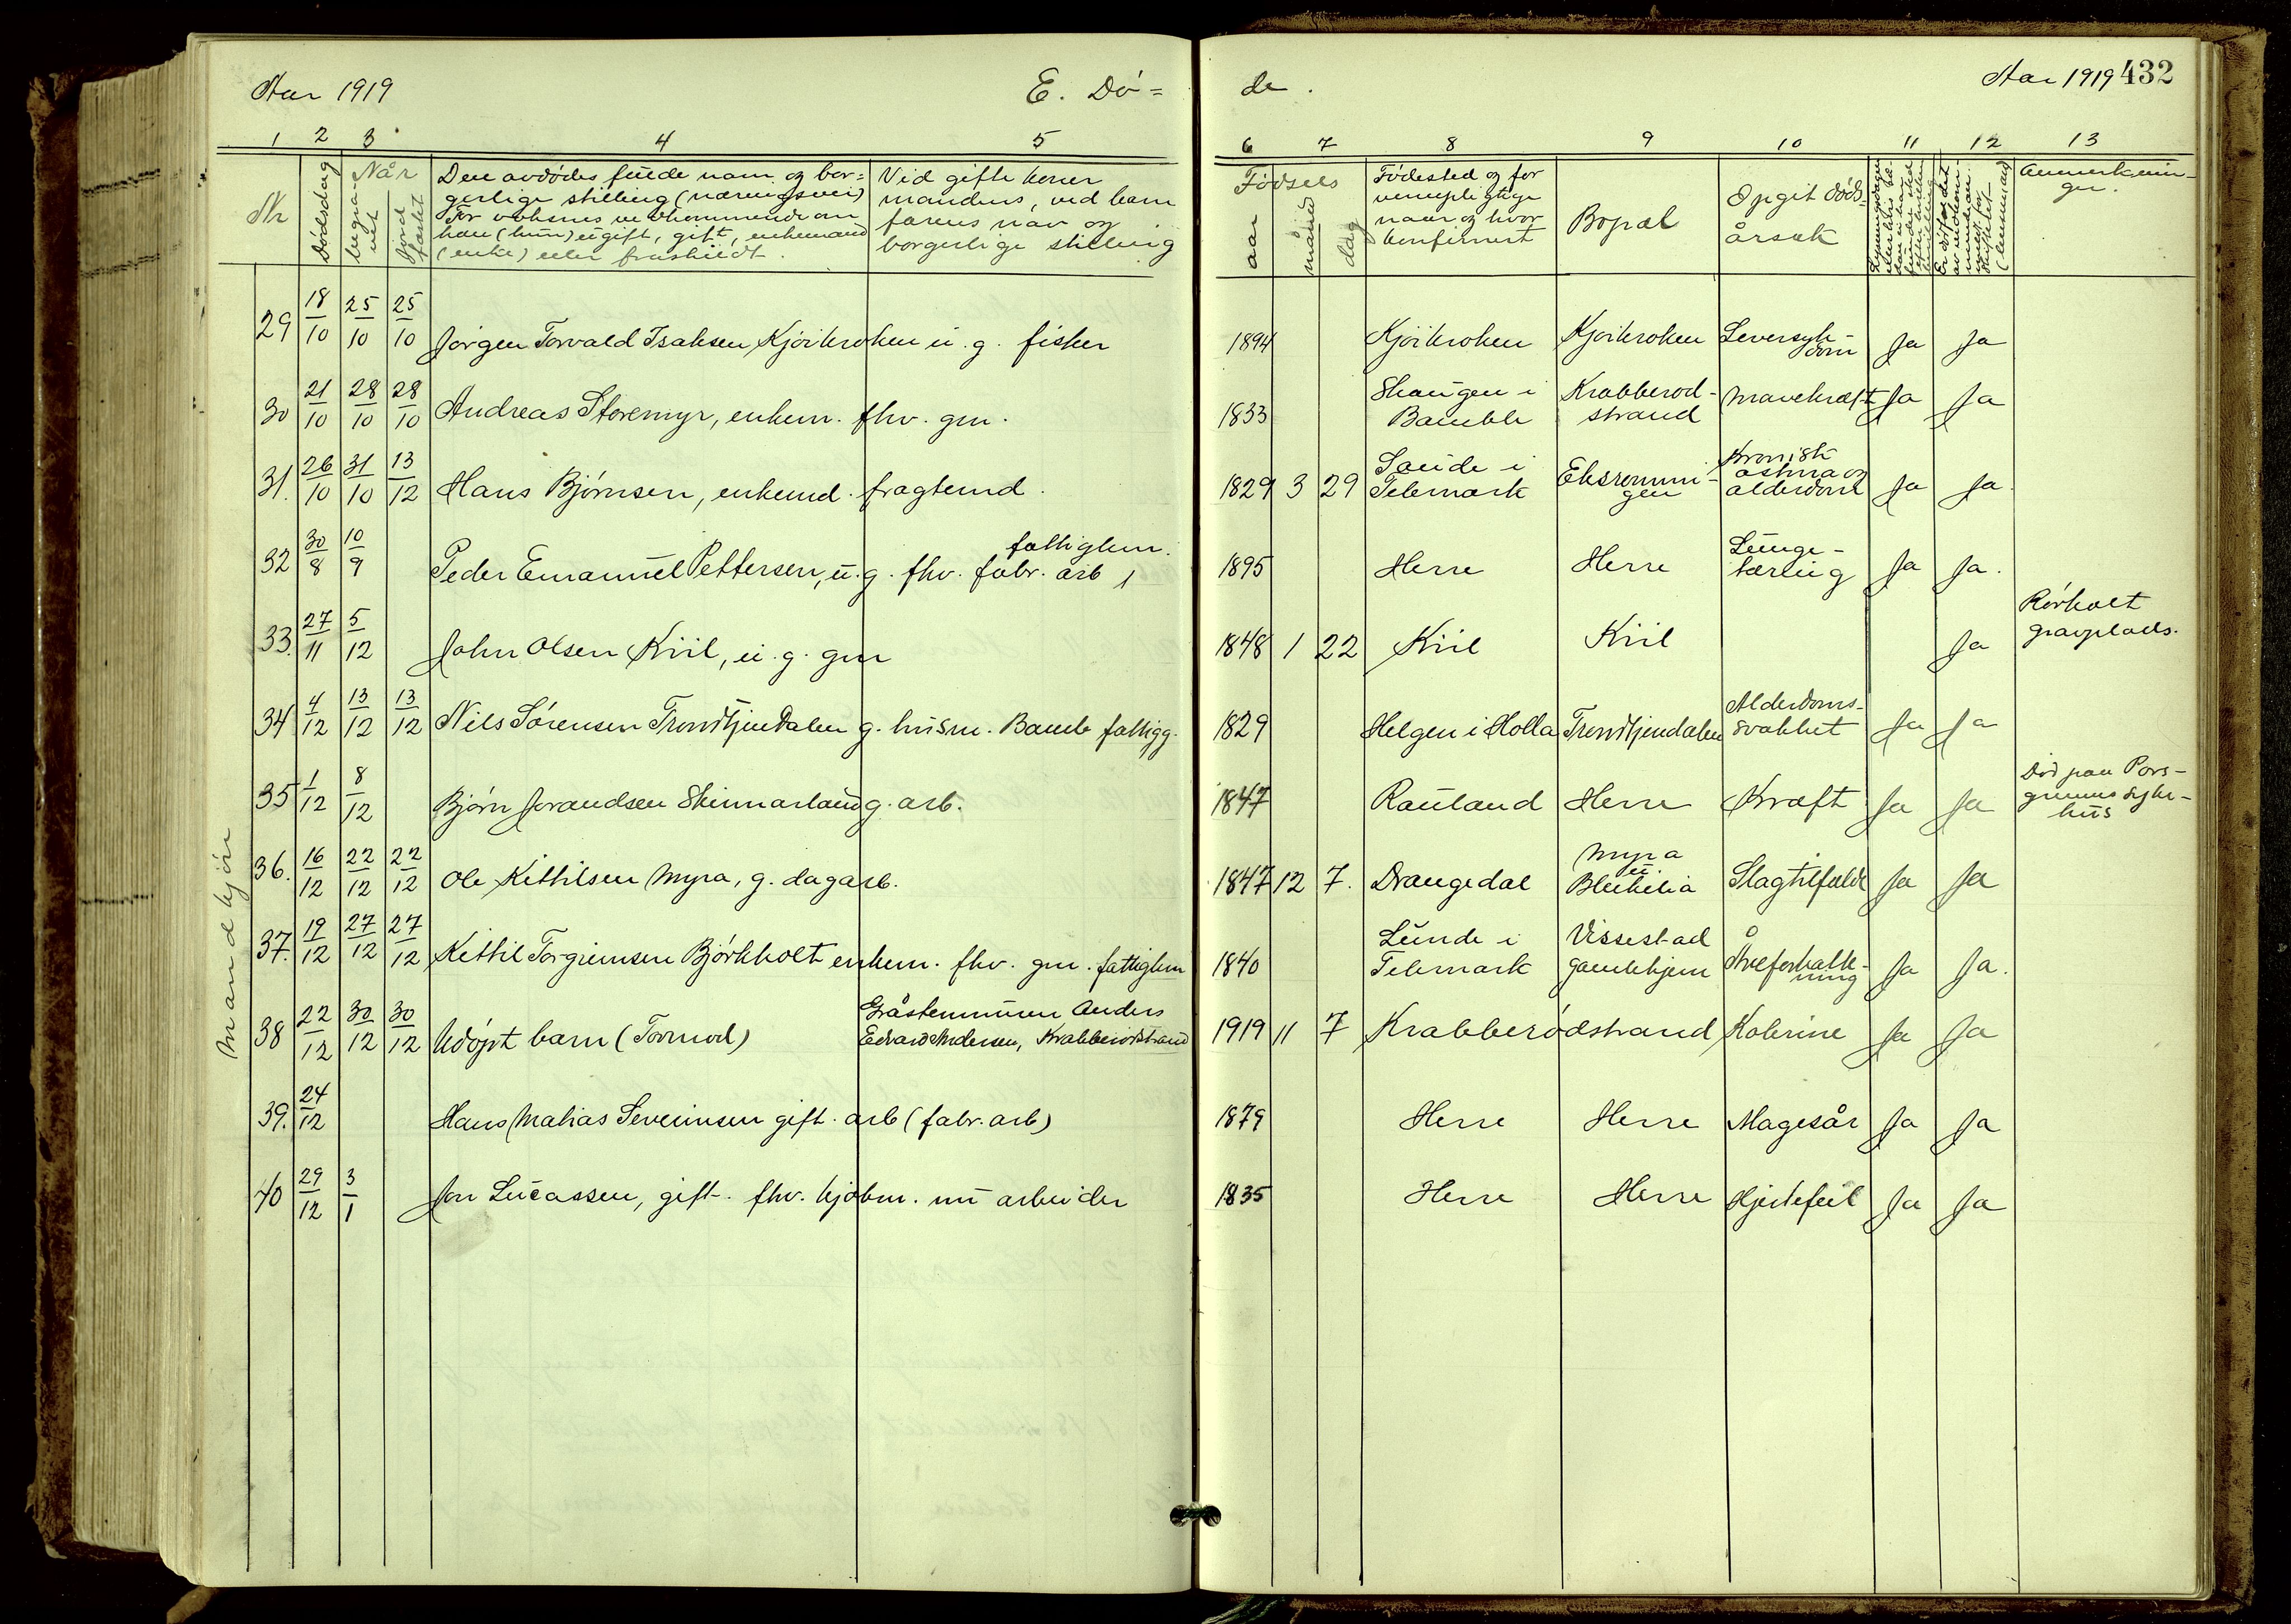 Aar 1919 E. Dö=
de. Aar 1919 432
1 2 3 4 5
6 7 8 9 10 11 12 13
Nr
Dödsdag
Når
begra-
vet
jord
fæstet
Den avdödes fulde navn og bor-
gerlige stilling (næringsvei)
For voksnes vedkommende om
han (hun) ugift, gift, enkemand
(enke) eller fraskildt.
Ved gifte koner
mandens, ved barn
farens navn og
borgerlige stilling
Födsels
aar
måned
dag
Födested og for
vernepligtige
naar og hvor
konfirmert
Bopæl
Opgit döds-
årsak
Anmerknin-
ger.
mandkjön
29 18/10 25/10 25/10 Jørgen Torvald Isaksen Kjöikroken u. g. fisker 1894 Kjöikroken Kjöikroken Leversyk-
dom Ja Ja
30 21/10 28/10 28/10 Andreas Storemyr, enkem. fhv. gm. 1833 Skaugen i
Bamble Krabberöd-
strand Mavekræft Ja Ja
31. 26/10 31/10 13/12 Hans Bjørnsen, enkemd. fragtemd. 1829 3 29 Saude i
Telemark Eksrommi-
gen Kronisk
astma og
alderdom Ja Ja.
32 30/8 10/9 Peder Emanuel Pettersen, u. g. fhv. fabr. arb, fattiglem. 1895 Herre Herre Lunge-
tæring Ja Ja.
33. 27/11 5/12 John Olsen Kiil, u. g. gm 1848 1 22 Kiil Kiil Ja Rørholt
gravplads.
34 4/12 13/12 13/12 Nils Sørensen Trondtjendalen g. husm. Bamb fattigg. 1829 Helgen i Holla Trondtjendalen Alderdoms-
svakhet Ja Ja
35 1/12 8/12 Bjørn Jorandsen Skinnarland g. arb. 1847 Rauland Herre Kræft Ja Ja Död paa Pors-
grunns syke-
hus
36. 16/12 22/12 22/12 Ole Kittilsen Myra, g. dagarb. 1847 12 7. Drangedal Myra
u.
Blekelia Slagtilfælde Ja Ja
37. 19/12 27/12 27/12 Kittil Torgrimsen Björkholt enkem. fhv. gm. fattiglem 1840 Lunde i
Telemark Vissestad
gamlehjem Åreforkalk-
ning Ja Ja.
38 22/12 30/12 30/12 Udöpt barn (Tormod) Gråstensmurer Anders
Edvard Andersen, Krabberödstrand 1919 11 7 Krabberødstrand Kolerine Ja Ja
39. 24/12 Hans Mathias Severinsen gift. arb (fabr. arb) 1879 Herre Herre Magesår Ja Ja
40 29/12 3/1 Jon Lucassen, gift. fhv. kjöbm. nu arbeider 1835 Herre Herre Hjertefeil Ja Ja